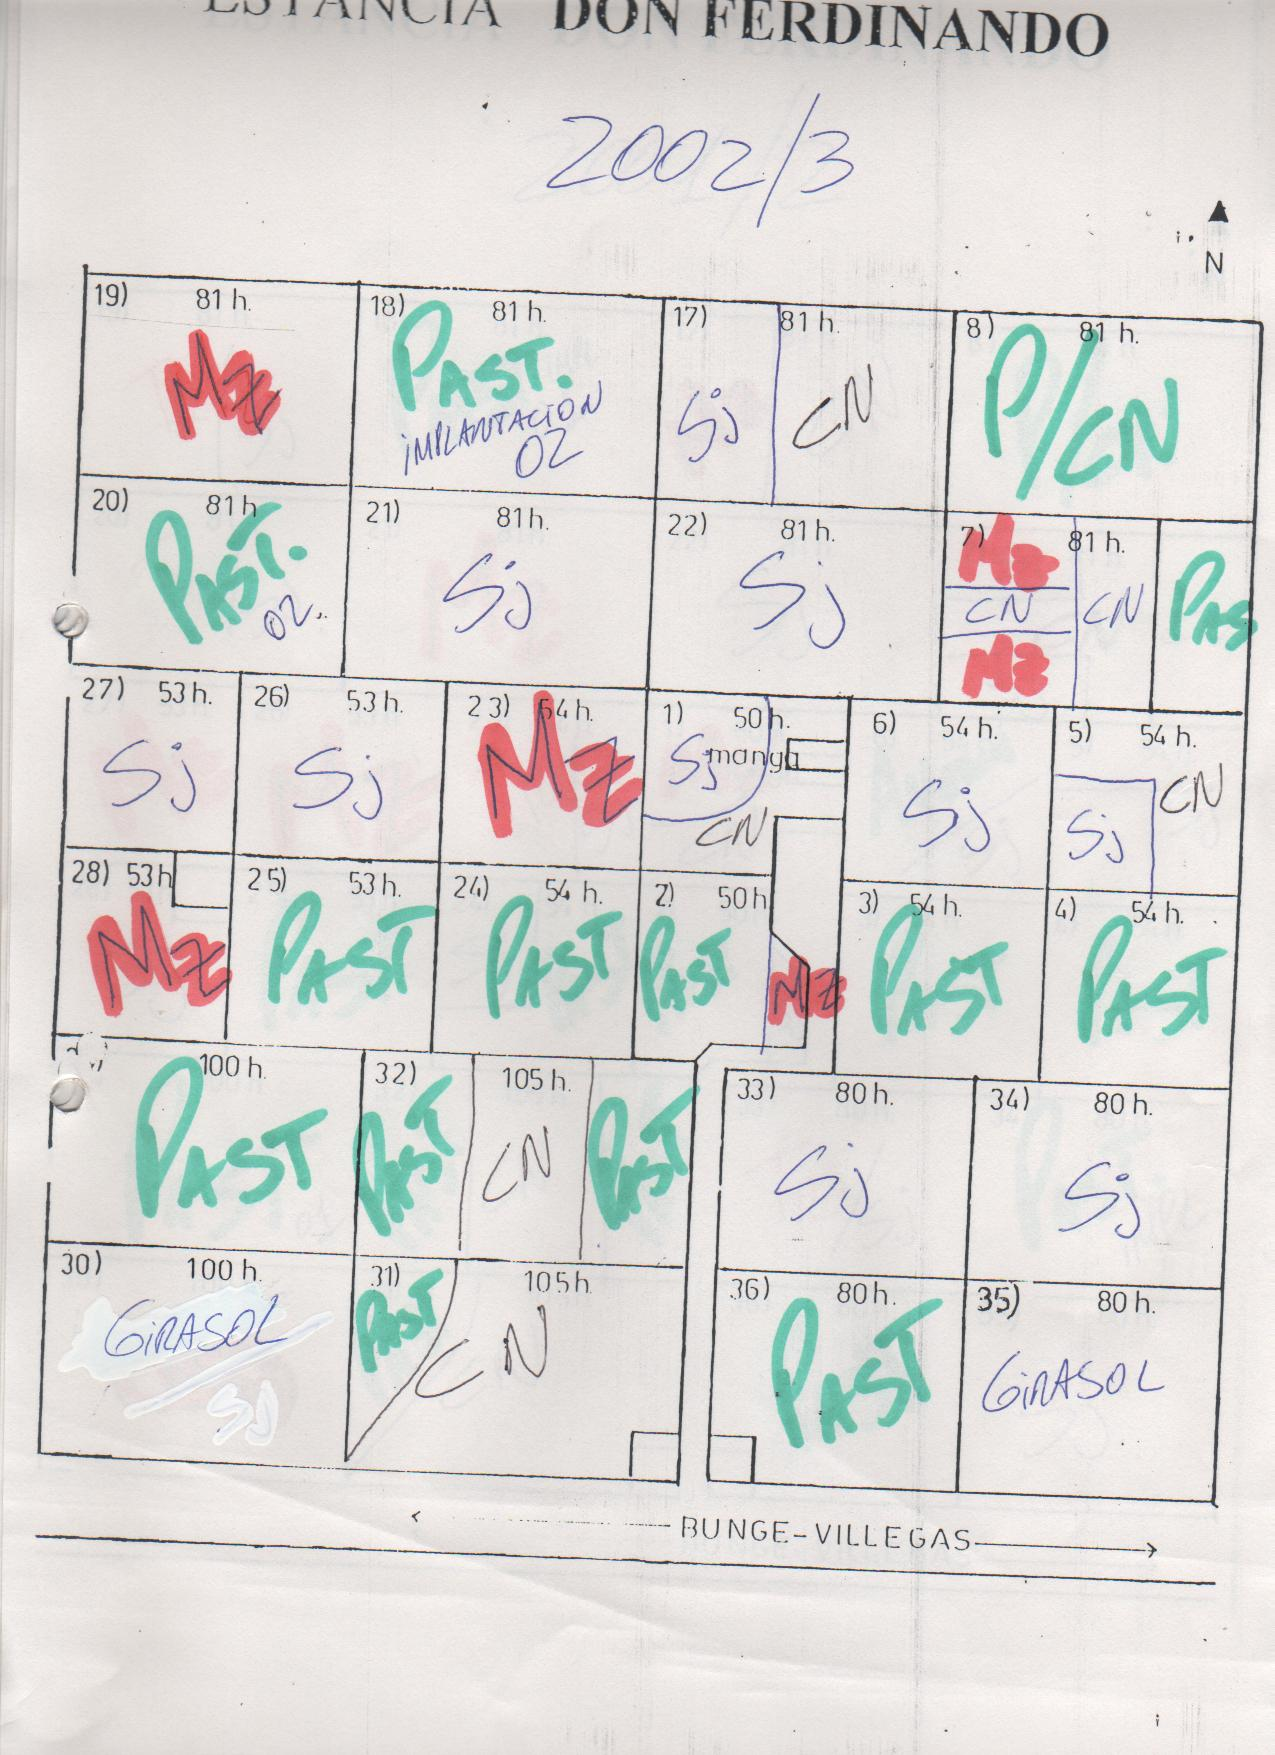 ESTANCIA DON FERDINANDO
2002/3
N
19) 81 h.
Mz
18) 81 h.
PAST.
iMPLANTACION
02
17) 81 h.
Sj CN
8) 81 h.
P/CN
20) 81 h
PAST.
02.
21) 81h.
Sj
22) 81h.
Sj
7) 81 h.
Mz
CN CN
Mz
PAS
27) 53 h.
Sj
26) 53 h.
Sj
23) 54 h.
Mz
1) 50 h.
Sj manga
CN
6) 54 h.
Sj
5) 54 h.
CN
Sj
28) 53h
Mz
25) 53 h.
PAST
24) 54 h.
PAST
2) 50 h
PAST
Mz
3) 54 h.
PAST
4) 54 h.
PAST
100 h.
PAST
32) 105 h.
PAST CN PAST
33) 80 h.
Sj
34) 80 h.
Sj
30) 100 h.
GiRASOL
Sj
31) 105 h.
PAST CN
36) 80 h.
PAST
35) 80 h.
GiRASOL
BUNGE-VILLEGAS